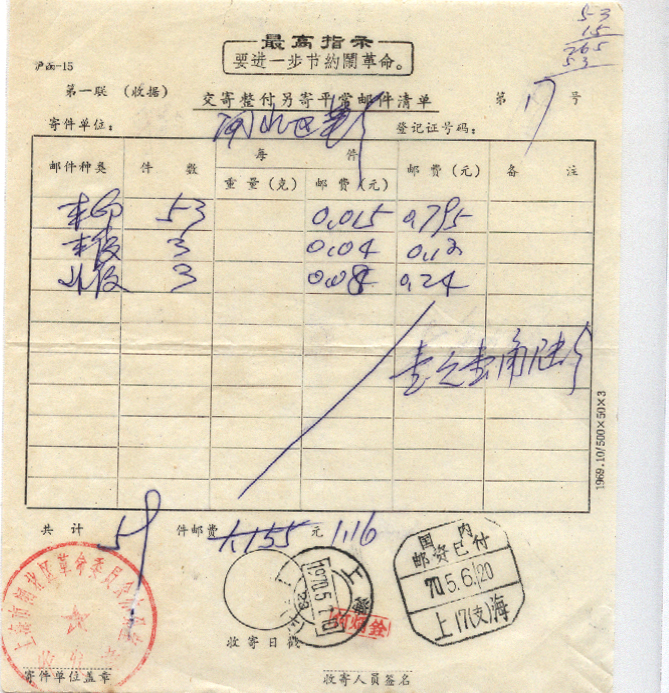 53
15
265
53
最高指示
要进一步节约闹革命。
沪函-15
第一联 (收据) 交寄整付另寄平常邮件清单 第 17 号
寄件单位: 登记证号码:
邮件种类 件数 每件 邮费(元) 备注
重量(克) 邮费(元)
本印 53 0.015 0.795
本收 3 0.04 0.12
外收 3 0.08 0.24
壹元壹角陆分
1969.10/500×50×3
共计 59 件邮费 1.155 元 1.16
国内
邮资已付
70.5.6.20
上17(支)海
上海
1970.5.
收寄日戳
寄件单位盖章
收寄人员签名